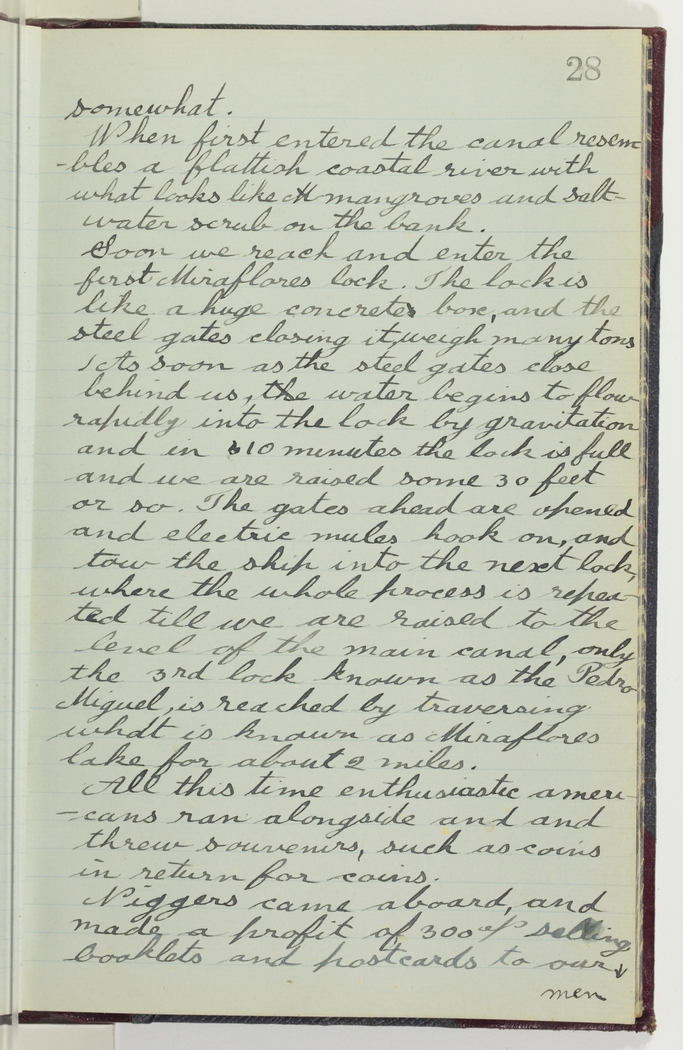 28
somewhat.
When first entered the canal resem
-bles a flattish coastal river with
what looks like mangroves and salt-
water scrub on the bank.
Soon we reach and enter the
first Miraflores lock. The lock is
like a huge concrete box, and the
steel gates closing it, weigh many tons
As soon as the steel gates close
behind us, the water begins to flow
rapidly into the lock by gravitation
and in 10 minutes the lock is full
and we are raised some 30 feet
or so. The gates ahead are opened
and electric mules hook on, and
tow the ship into the next lock,
where the whole process is repea-
ted till we are raised to the
level of the main canal, only
the 3rd lock known as the Pedro
Miguel, is reached by traversing
what is known as Miraflores
lake for about 2 miles.
All this time enthusiastic ameri-
-cans ran alongside and and
threw souvenirs, such as coins
in return for coins.
Niggers came aboard, and
made a profit of 300% selling
booklets and postcards to our
men